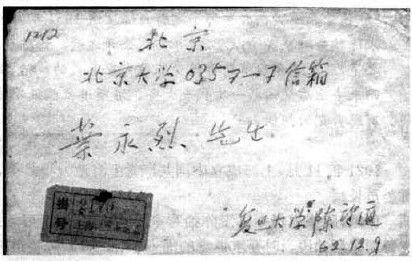 1212
北京
北京大学0357-7信箱
葉永烈 先生
掛号
复旦大学陈望道
62.12.9